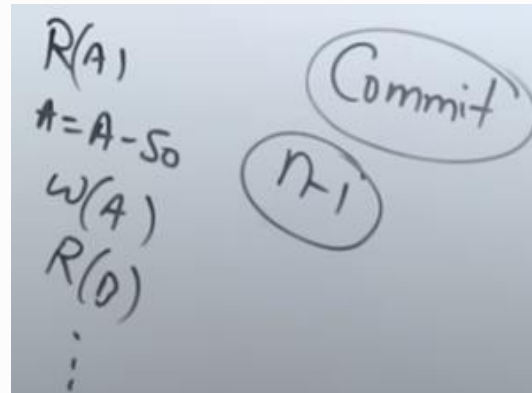 R(A)
A=A-50
W(A)
R(D)
⋮
Commit
n-1